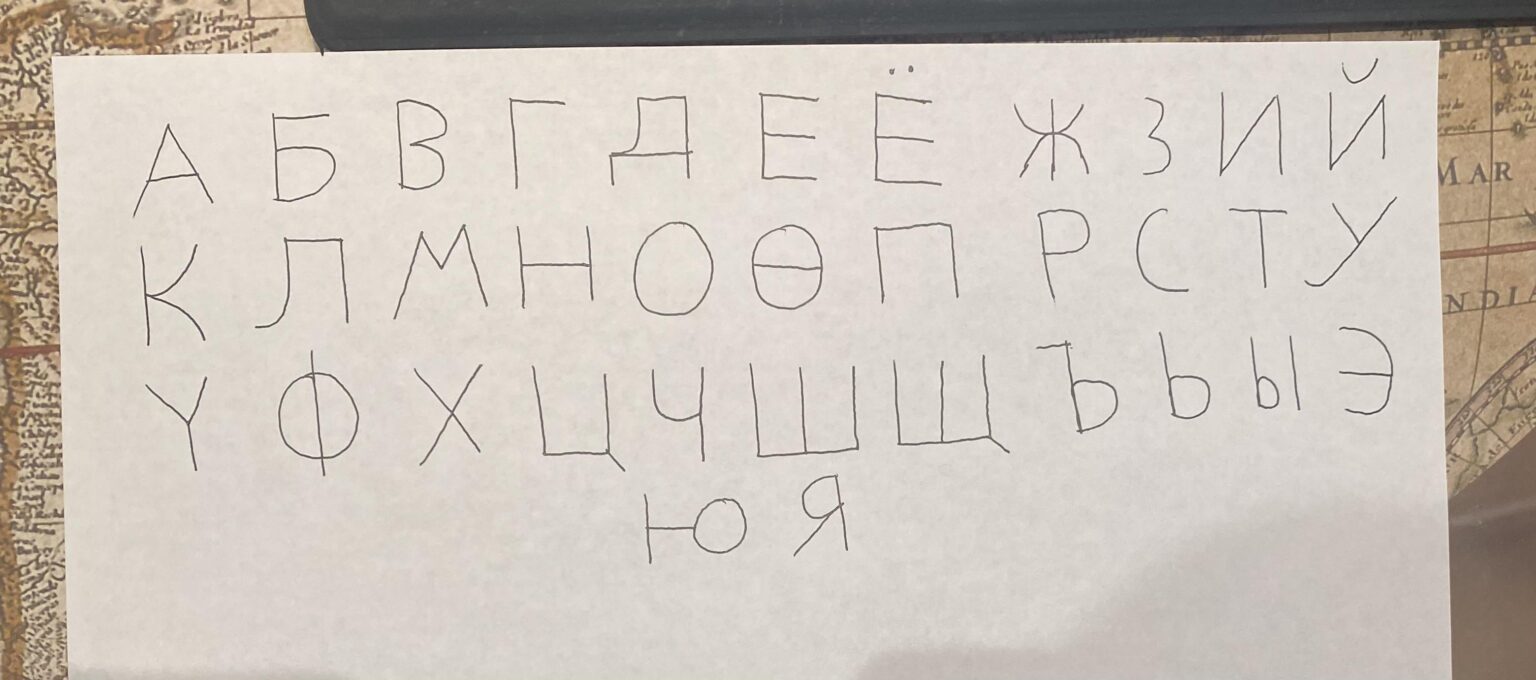 А Б В Г Д Е Ё Ж З И Й
К Л М Н О Ө П Р С Т У
Ү Ф Х Ц Ч Ш Щ Ъ Ь Ы Э
Ю Я
MAR